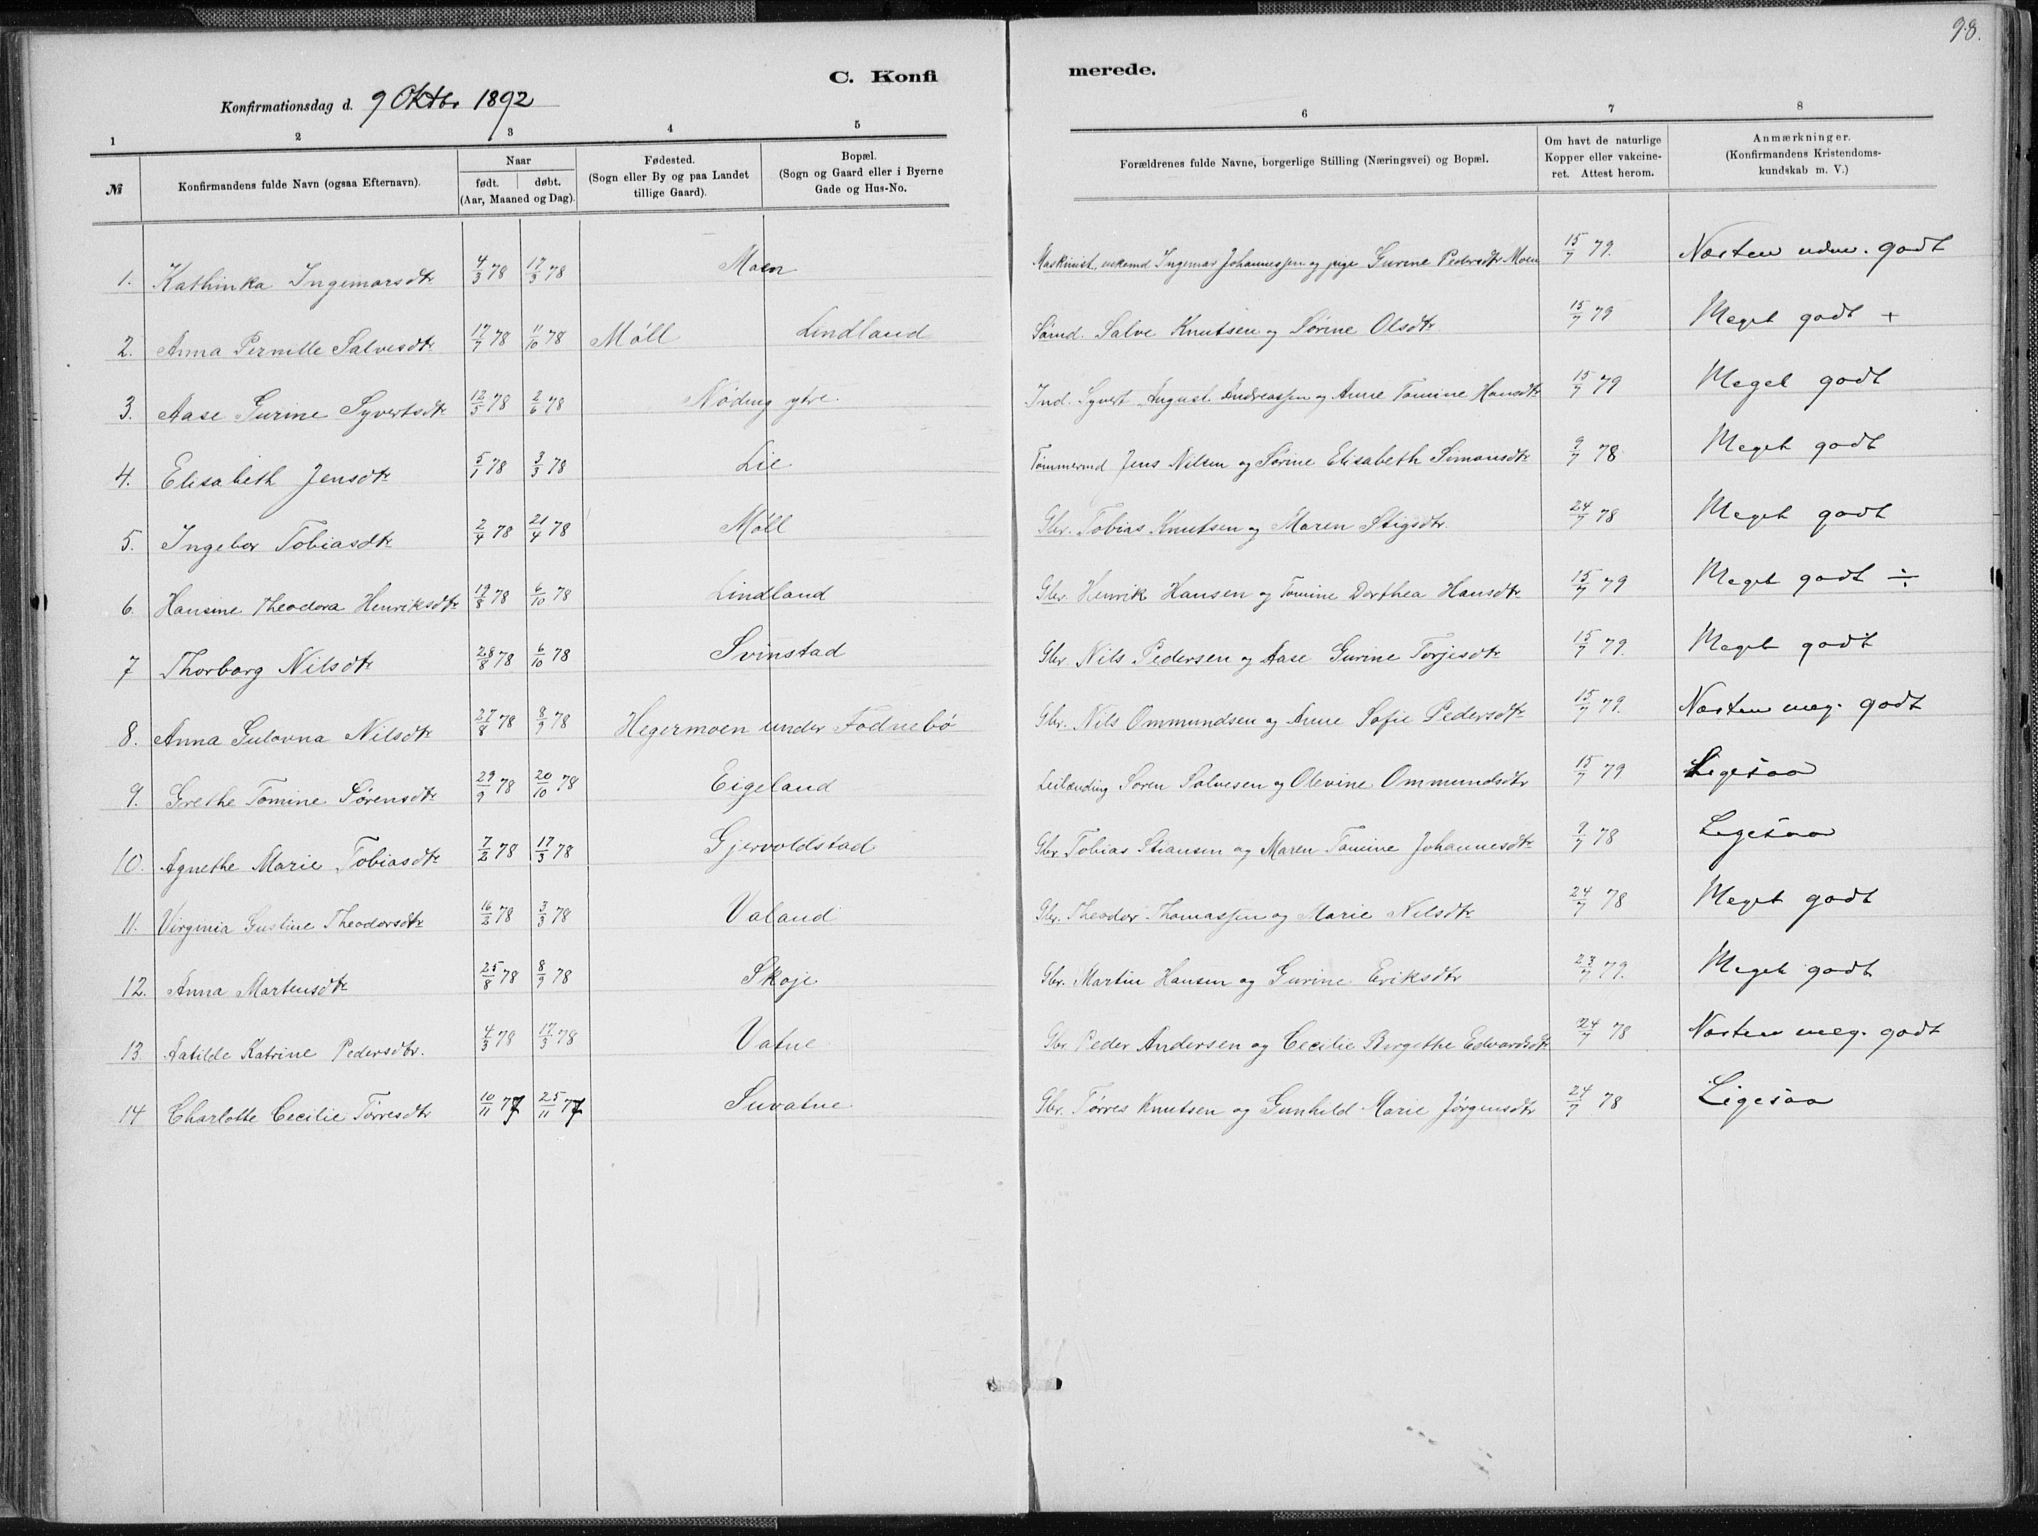 98.
C. Konfirmerede.
Konfirmationsdag d. 9 Oktbr 1892
1 2 3 4 5 6 7 8
№ | Konfirmandens fulde Navn (ogsaa Efternavn). | Naar født. døbt. (Aar, Maaned og Dag). | Fødested. (Sogn eller By og paa Landet tillige Gaard). | Bopæl. (Sogn og Gaard eller i Byerne Gade og Hus-No. | Forældrenes fulde Navne, borgerlige Stilling (Næringsvei) og Bopæl. | Om havt de naturlige Kopper eller vakcineret. Attest herom. | Anmærkninger. (Konfirmandens Kristendomskundskab m. V.)
1. Kathinka Ingemarsdtr 4/3 78 17/3 78 Moen Maskinist, Ingemar Johannessen og pige Gurine Pedersdtr Moen 15/7 79. Næsten udm. godt
2. Anna Pernille Salvesdtr 17/7 78 11/10 78 Møll Lindland Sømd. Salve Knutsen og Sørine Olsdtr 15/7 79 Meget godt +
3. Aase Gurine Syvertsdtr 12/5 78 2/6 78 Nøding ytre. Ind. Syvert August Andreassen og Anne Tomine Hansdtr 15/7 79 Meget godt
4. Elisabeth Jensdtr 5/1 78 3/3 78 Lie Tømmermd Jens Nilsen og Sørine Elisabeth Simonsdtr 9/7 78 Meget godt
5. Ingebor Tobiasdtr 2/4 78 21/4 78 Møll Gbr. Tobias Knutsen og Maren Stigsdtr 24/7 78 Meget godt
6. Hansine Theodora Henriksdtr 19/8 78 6/10 78 Lindland Gbr. Henrik Hansen og Tomine Dorthea Hansdtr 15/7 79 Meget godt ÷
7 Thorborg Nilsdtr 28/8 78 6/10 78 Svinstad Gbr. Nils Pedersen og Aase Gurine Torjesdtr 15/7 79. Meget godt
8. Anna Gulovna Nilsdtr 27/8 78 8/9 78 Hegermoen under Fodnebø Gbr. Nils Ommundsen og Anne Sofie Pedersdtr 15/7 79. Næsten meg. godt
9. Grethe Tomine Sørensdtr 29/9 78 20/10 78 Eigeland Leilænding Søren Salvesen og Olevine Ommundsdtr 15/7 79 Ligesaa
10. Agnethe Marie Tobiasdtr 7/2 78 17/3 78 Gjervoldstad Gbr Tobias Stiansen og Maren Tomine Johannesdtr 9/7 78 Ligesaa
11. Virginia Gustine Theodorsdtr 16/2 78 3/3 78 Valand Gbr. Theodor Thomassen og Marie Nilsdtr 24/7 78 Meget godt
12. Anna Martensdtr 25/8 78 8/9 78 Skoje Gbr. Martin Hansen og Gurine Eriksdtr 23/7 79. Meget godt
13. Aatilde Katrine Pedersdtr. 4/3 78 17/3 78 Vatne Gbr Peder Andersen og Cecilie Birgethe Edvardsdtr 24/7 78 Næsten meg. godt
14 Charlotte Cecilie Tørresdtr 10/11 77 25/11 77 Suvatne Gbr. Tørres Knutsen og Gunhild Marie Jørgensdtr 24/7 78 Ligesaa